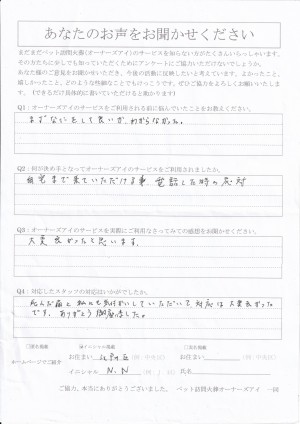 あなたのお声をお聞かせください
まだまだペット訪問火葬(オーナーズアイ)のサービスを知らない方がたくさんいらっしゃいます。
その方たちに少しでも知っていただくためにアンケートにご協力いただけないでしょうか。
あなた様のご意見をお聞かせいただき、今後の活動に反映したいと考えています。よかったこと、
嬉しかったこと、どのような些細なことでもけっこうです。ぜひご協力をよろしくお願いいたしま
す。(できるだけ具体的に書いていただけると助かります)
Q1:オーナーズアイのサービスをご利用される前に悩んでいたことをお教えください。
まずなにをして良いか、わからなかった。
Q2:何が決め手となってオーナーズアイのサービスを利用されましたか。
自宅まで来ていただける事 電話した時の応対
Q3:オーナーズアイのサービスを実際にご利用なさってみての感想をお聞かせください。
大変良かったと思います。
Q4:対応したスタッフの対応はいかがでしたか。
死んだ猫と私にも気づかいしていただいて対応は大変良かった
です。ありがとう御座居ました。
実名掲載 イニシャル掲載 匿名掲載
ホームページでご紹介
お住まい 江別区 (例:中央区) お住まい (例:中央区)
イニシャル N.N (例 ) 氏名
ご協力、本当にありがとうございました。 ペット訪問火葬オーナーズアイ 一同